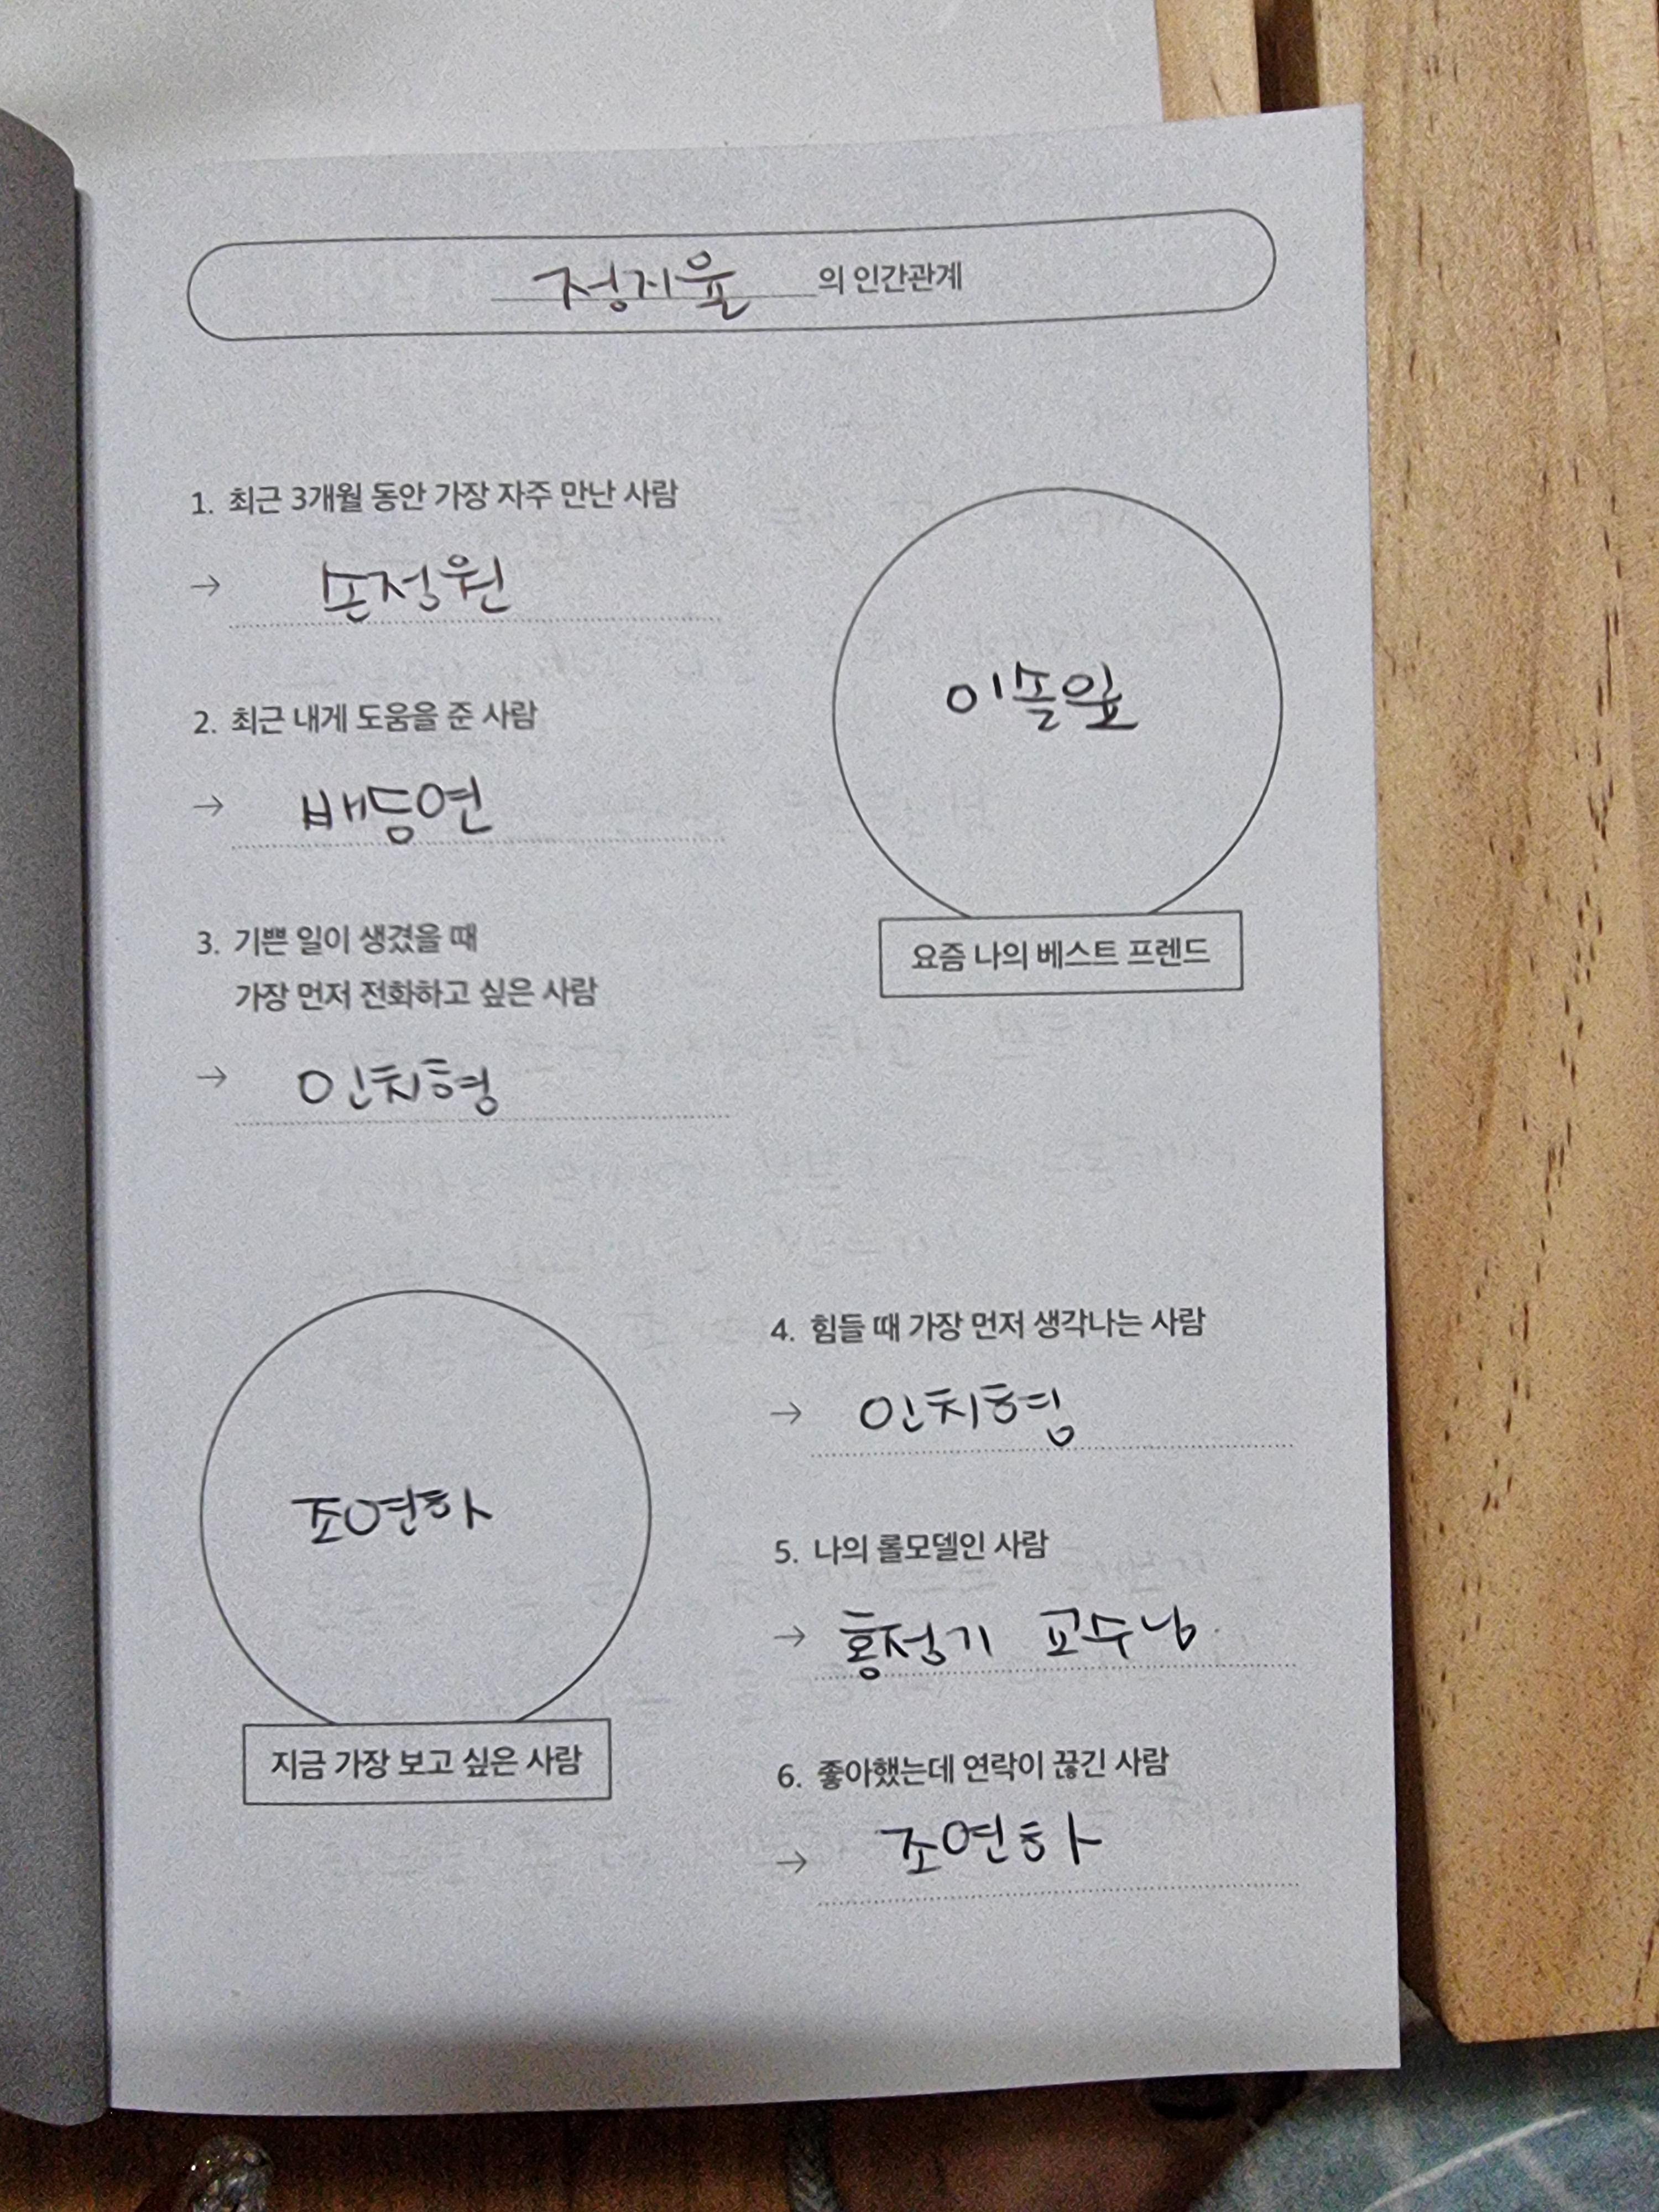 정지율 의 인간관계
1. 최근 3개월 동안 가장 자주 만난 사람
→ 손정원
2. 최근 내게 도움을 준 사람
→ 배등연
3. 기쁜 일이 생겼을 때
가장 먼저 전화하고 싶은 사람
→ 인치형
이솔잎
요즘 나의 베스트 프렌드
조연하
지금 가장 보고 싶은 사람
4. 힘들 때 가장 먼저 생각나는 사람
→ 인치형
5. 나의 롤모델인 사람
→ 홍정기 교수님
6. 좋아했는데 연락이 끊긴 사람
→ 조연하